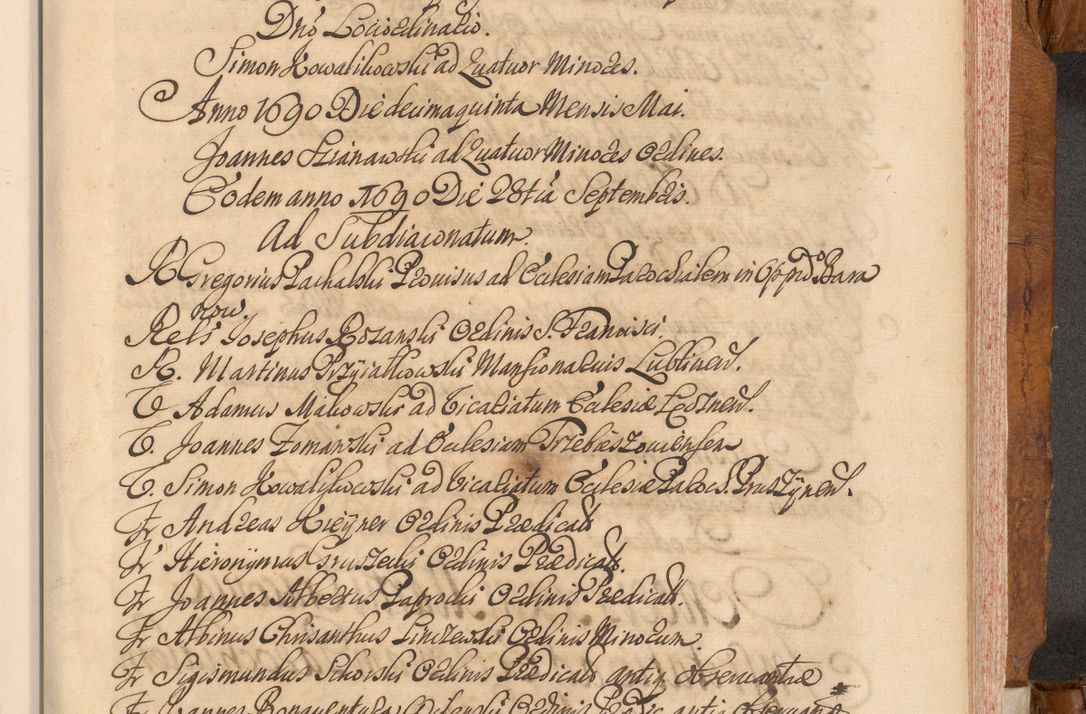 Dnō Locioclinalio.
Simon Kowalikowski ad Quatuor Minores.
Anno 1690 Die decima quinta Mensis Mai.
Joannes Szianawski ad Quatuor Minores Ordines.
Eodem anno 1690 Die 28tia Septembris.
Ad Subdiaconatum.
R Gregorius Pachalski Provisus ad Ecclesiam Parochialem in Oppido Bara
now.
Rels Josephus Rozanski Ordinis S. Francisci.
R. Martinus Przyiałkowski Mansionarius Lublinen.
V Adamus Makowski ad Vicariatum Ecclesiæ Lecznen.
V. Joannes Zomanski ad Ecclesiam Trzebeszouiensem
V. Simon Kowalikowski ad Vicariatum Ecclesiæ Paroch. Pruszÿnen.
Fr Andreas Kieÿner Ordinis Prædicat
Fr Hieronÿmus Gruszecki Ordinis Prædicat.
Fr Joannes Albertus Paprocki Ordinis Prædicat.
Fr Albinus Chrisanthus Linczewski Ordinis Minorum
Fr Sigismundus Sikorski Ordinis Prædicat antiq observantiæ
Fr Joannes Bonaventura Ordinis antiq observant